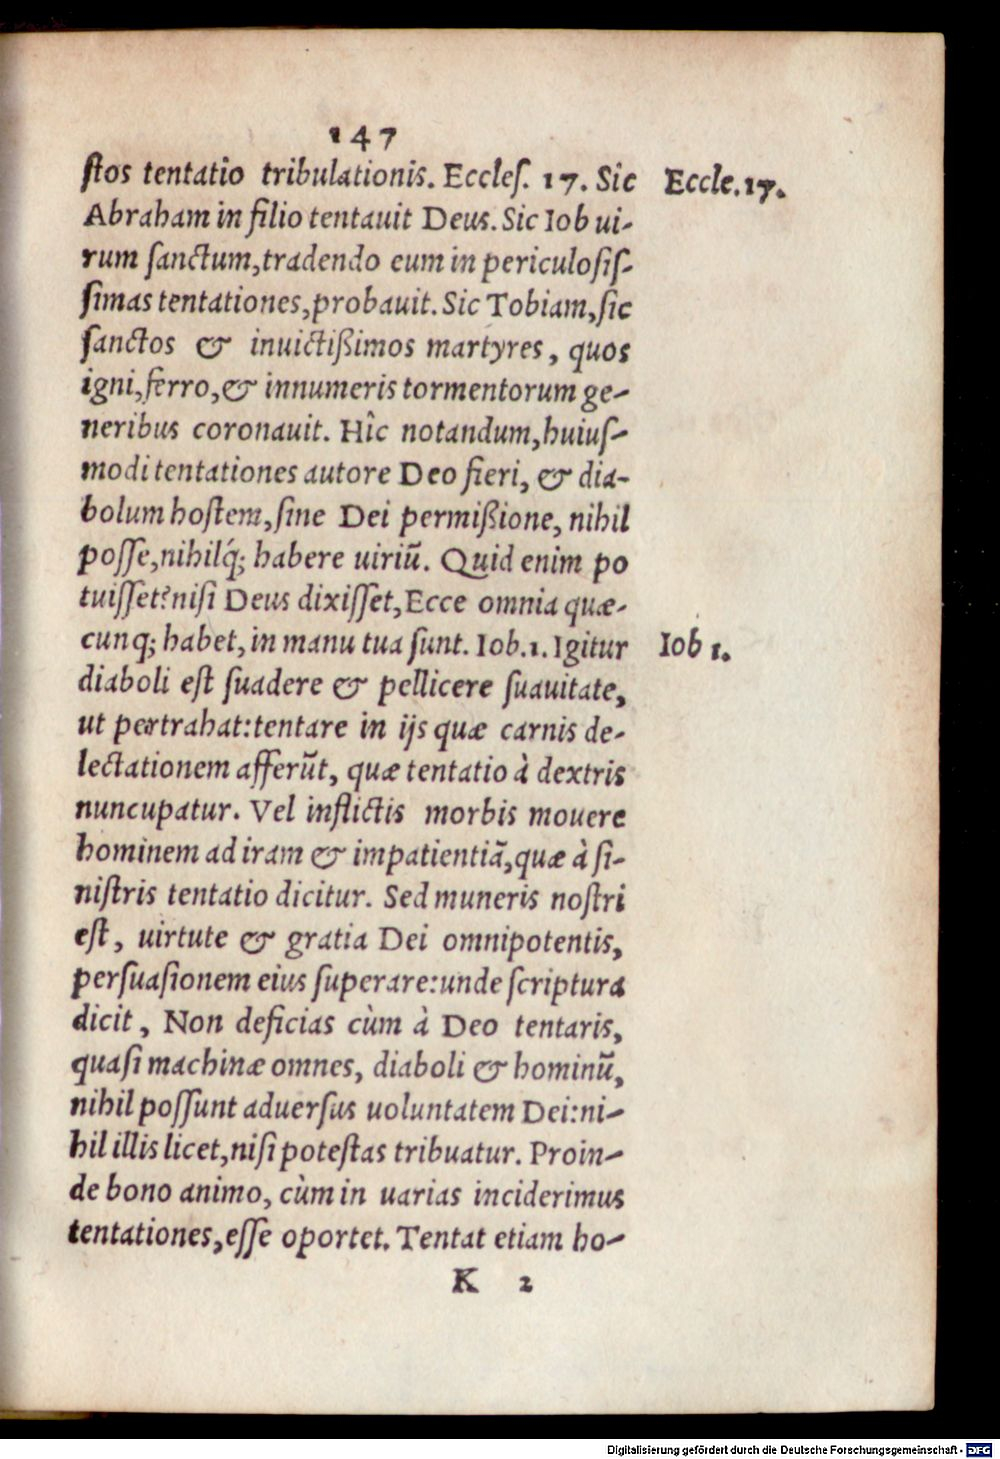 147
ſtos tentatio tribulationis. Eccleſ. 17. Sic
Eccle. 17.
Abraham in filio tentauit Deus. Sic Iob ui-
rum ſanctum, tradendo eum in periculoſiſ-
ſimas tentationes, probauit. Sic Tobiam, ſic
ſanctos & inuictißimos martyres, quos
igni, ferro, & innumeris tormentorum ge-
neribus coronauit. Hîc notandum, huiuſ-
modi tentationes autore Deo fieri, & dia-
bolum hoſtem, ſine Dei permißione, nihil
poſſe, nihilq́; habere uiriũ. Quid enim po
tuiſſet? niſi Deus dixiſſet, Ecce omnia quæ-
cunq; habet, in manu tua ſunt. Iob. 1. Igitur
Iob 1.
diaboli eſt ſuadere & pellicere ſuauitate,
ut pertrahat: tentare in ijs quæ carnis de-
lectationem afferũt, quæ tentatio à dextris
nuncupatur. Vel inflictis morbis mouere
hominem ad iram & impatientiã, quæ à ſi-
niſtris tentatio dicitur. Sed muneris noſtri
eſt, uirtute & gratia Dei omnipotentis,
perſuaſionem eius ſuperare: unde ſcriptura
dicit, Non deficias cùm à Deo tentaris,
quaſi machinæ omnes, diaboli & hominũ,
nihil poſſunt aduerſus uoluntatem Dei: ni-
hil illis licet, niſi poteſtas tribuatur. Proin-
de bono animo, cùm in uarias inciderimus
tentationes, eſſe oportet. Tentat etiam ho-
K 2
Digitalisierung gefördert durch die Deutsche Forschungsgemeinschaft - DFG